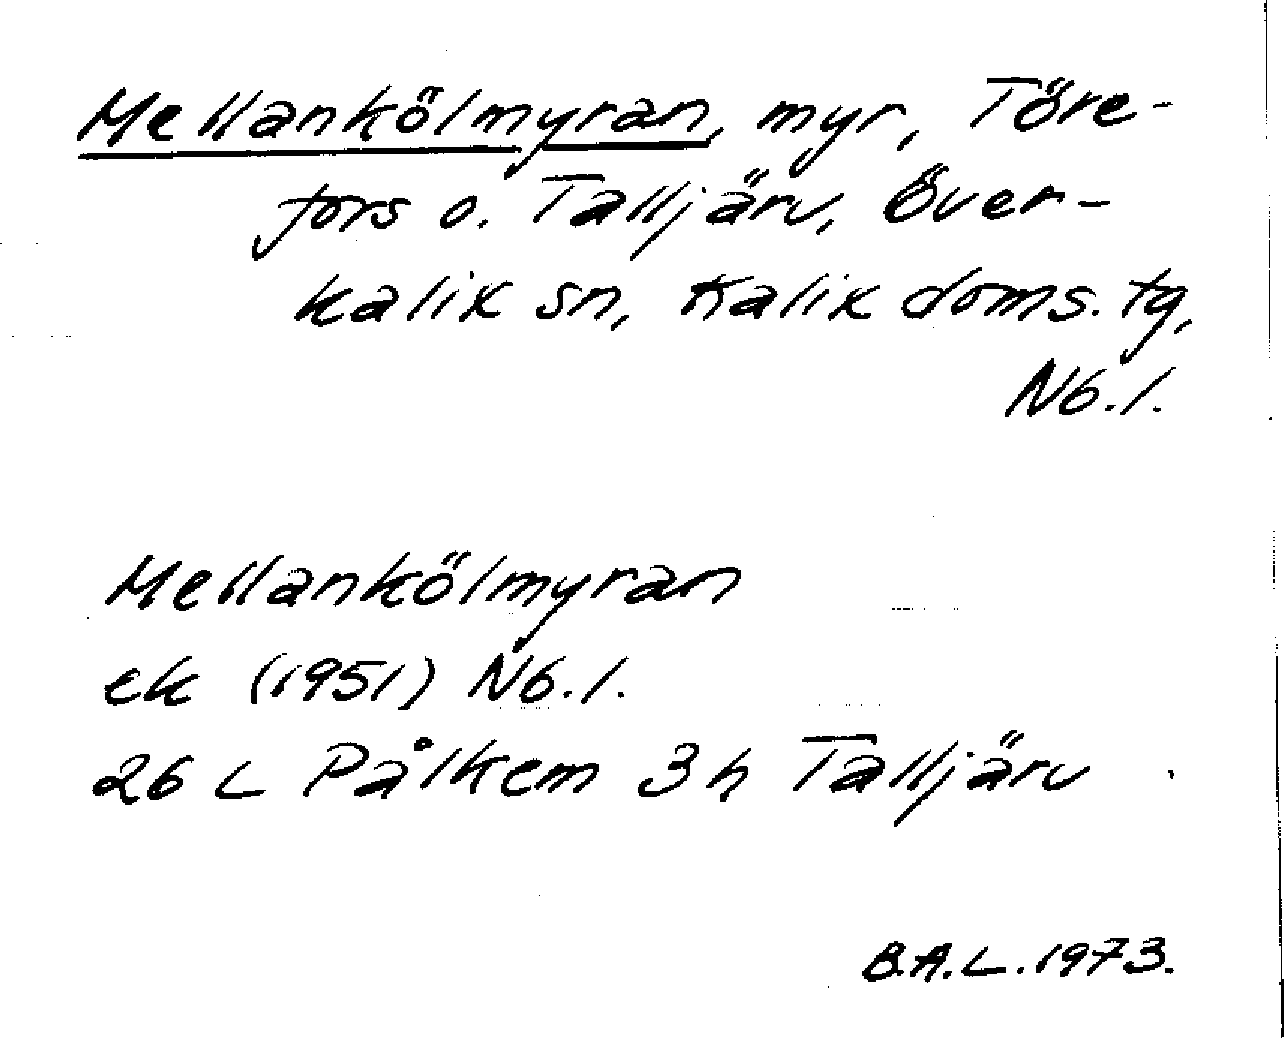 Mellankölmyran, myr, Töre-
fors o. Talljärv, Över-
kalix sn, Kalix doms. tg,
Nb. l.
Mellankölmyran
ek (1951) Nb. l.
26 L Pålkem 3 h Talljärv
B.A.L. 1973.